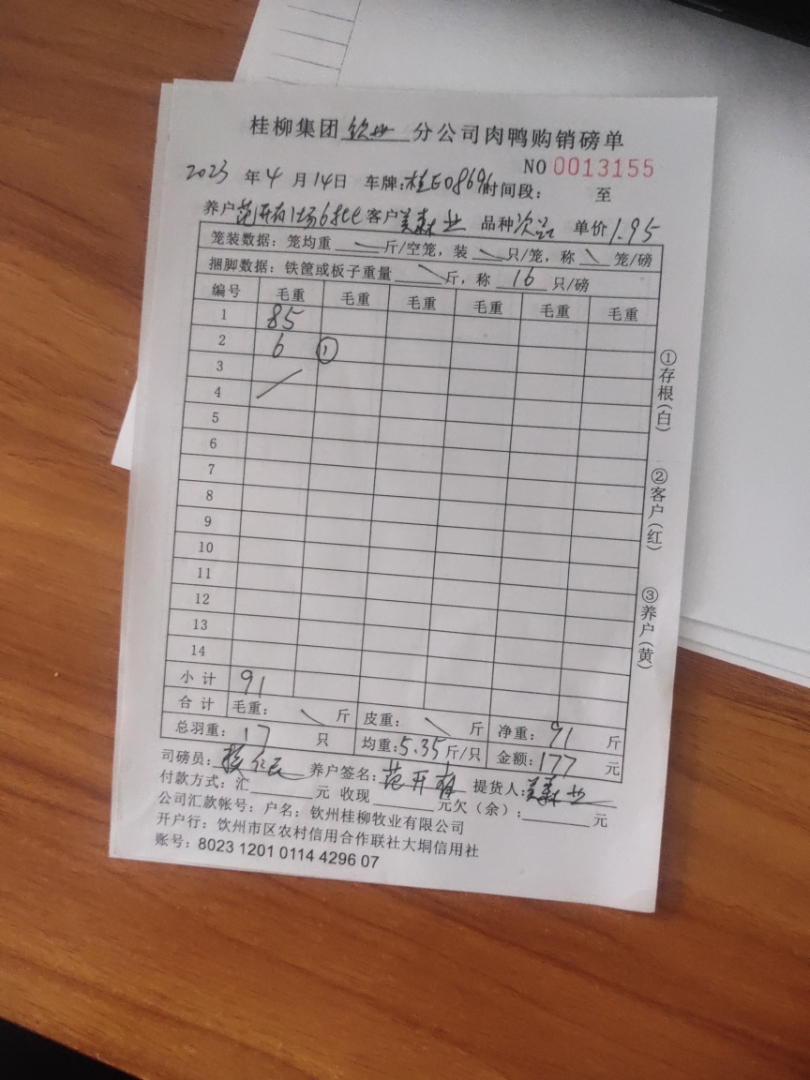 桂柳集团 钦州 分公司肉鸭购销磅单
NO 0013155
2023 年 4 月 14 日 车牌: 桂E0869 时间段: 至
养户 范开有 1场6批 客户 森业 品种 次品 单价 1.95
笼装数据: 笼均重 \ 斤/空笼, 装 \ 只/笼, 称 \ 笼/磅
捆脚数据: 铁筐或板子重量 \ 斤, 称 16 只/磅
编号 毛重 毛重 毛重 毛重 毛重 毛重
1 85
2 6 ①
3
4
5
6
7
8
9
10
11
12
13
14
小计 91
合计 毛重: \ 斤 皮重: \ 斤 净重: 91 斤
总羽重: 17 只 均重: 5.35 斤/只 金额: 177 元
司磅员: 养户签名: 范开有 提货人: 森业
付款方式: 汇 元 收现 元欠(余): 元
公司汇款帐号: 户名: 钦州桂柳牧业有限公司
开户行: 钦州市区农村信用合作联社大垌信用社
账号: 8023 1201 0114 4296 07
①存根(白)
②客户(红)
③养户(黄)